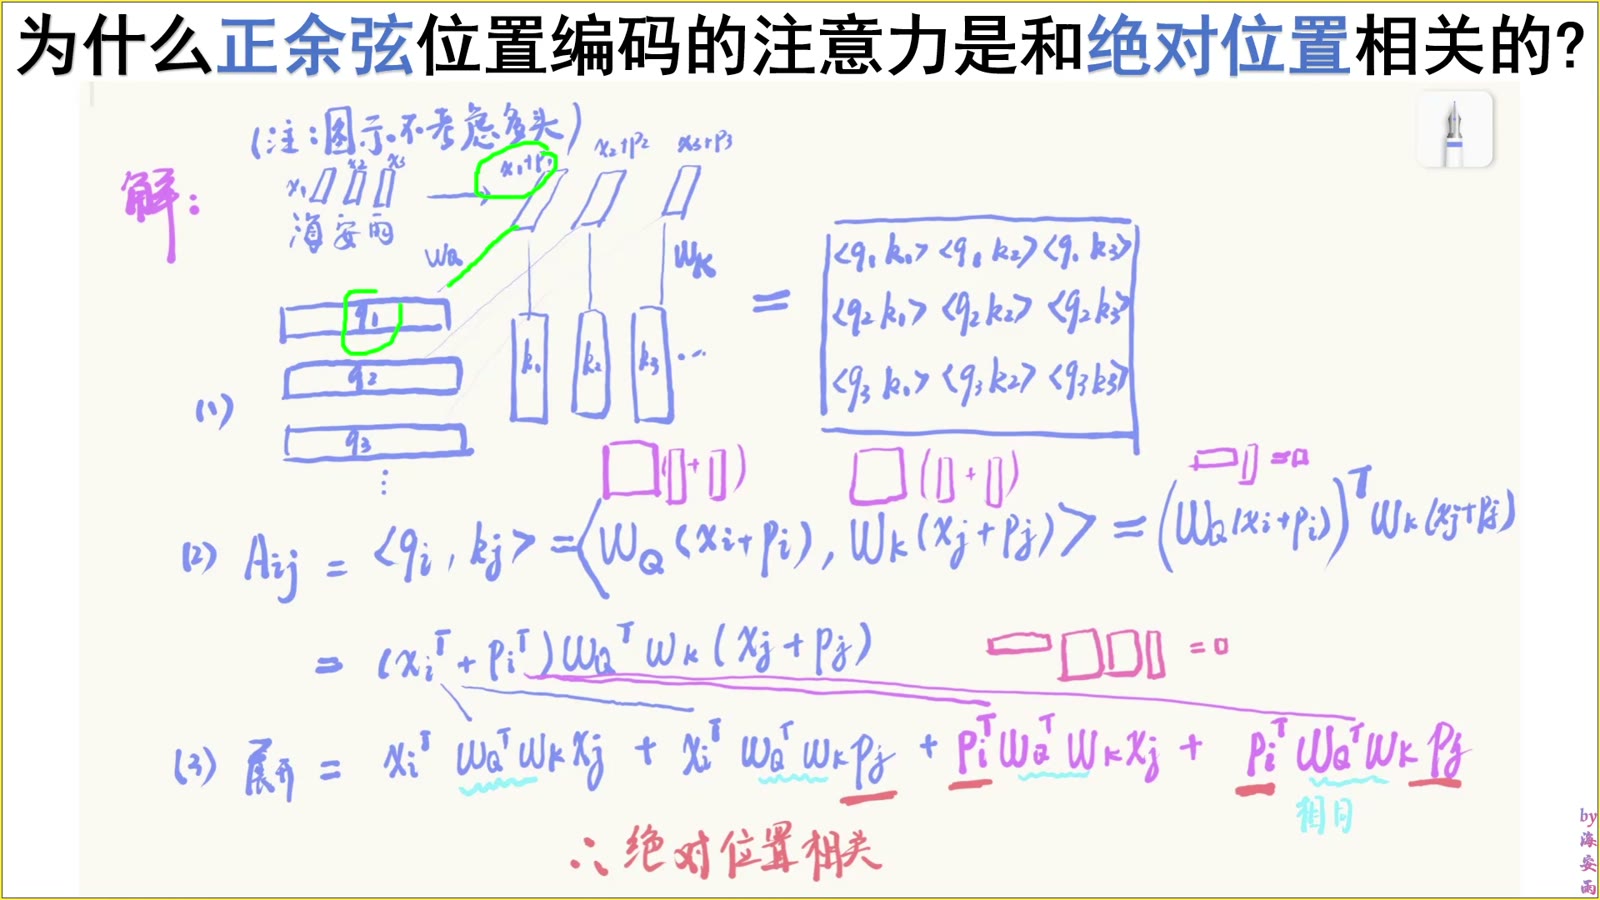 为什么正余弦位置编码的注意力是和绝对位置相关的?
(注:图示不考虑多头)
解:
x₁ x₂ x₃
海安雨
x₁+p₁ x₂+p₂ x₃+p₃
W_Q
W_K
(1)
q₁
q₂
q₃
⋮
k₁ k₂ k₃ ...
=
<q₁ k₁> <q₁ k₂> <q₁ k₃>
<q₂ k₁> <q₂ k₂> <q₂ k₃>
<q₃ k₁> <q₃ k₂> <q₃ k₃>
(2) Aij = <qi, kj> = <W_Q (xi+pi), W_K (xj+pj)> = (W_Q(xi+pi))ᵀ W_K (xj+pj)
= (xiᵀ + piᵀ) W_Qᵀ W_K (xj + pj)
(3) 展开 = xiᵀ W_Qᵀ W_K xj + xiᵀ W_Qᵀ W_K pj + piᵀ W_Qᵀ W_K xj + piᵀ W_Qᵀ W_K pj
相同
∴ 绝对位置相关
by
海
安
雨